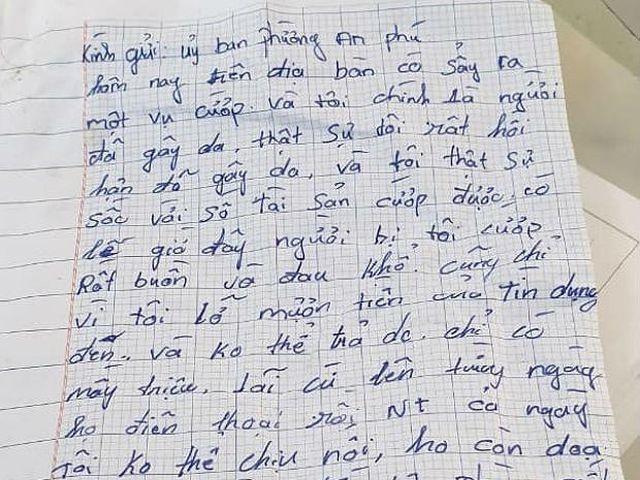 Kính gửi: uỷ ban phường An phú
hôm nay trên địa bàn có sảy ra
một vụ cướp. và tôi chính là người
đã gây da, thật sự tôi rất hối
hận đã gây da, và tôi thật sự
sốc với số tài sản cướp được, có
lẽ giờ đây người bị tôi cướp
Rất buồn và đau khổ. cũng chỉ
vì tôi lỡ mượn tiền của Tín dụng
đen. và ko thể trả dc. chỉ có
mấy triệu. lãi cứ lên từng ngày
họ điện thoại rồi Nt cả ngày
tôi ko thể chịu nổi, họ còn doạ